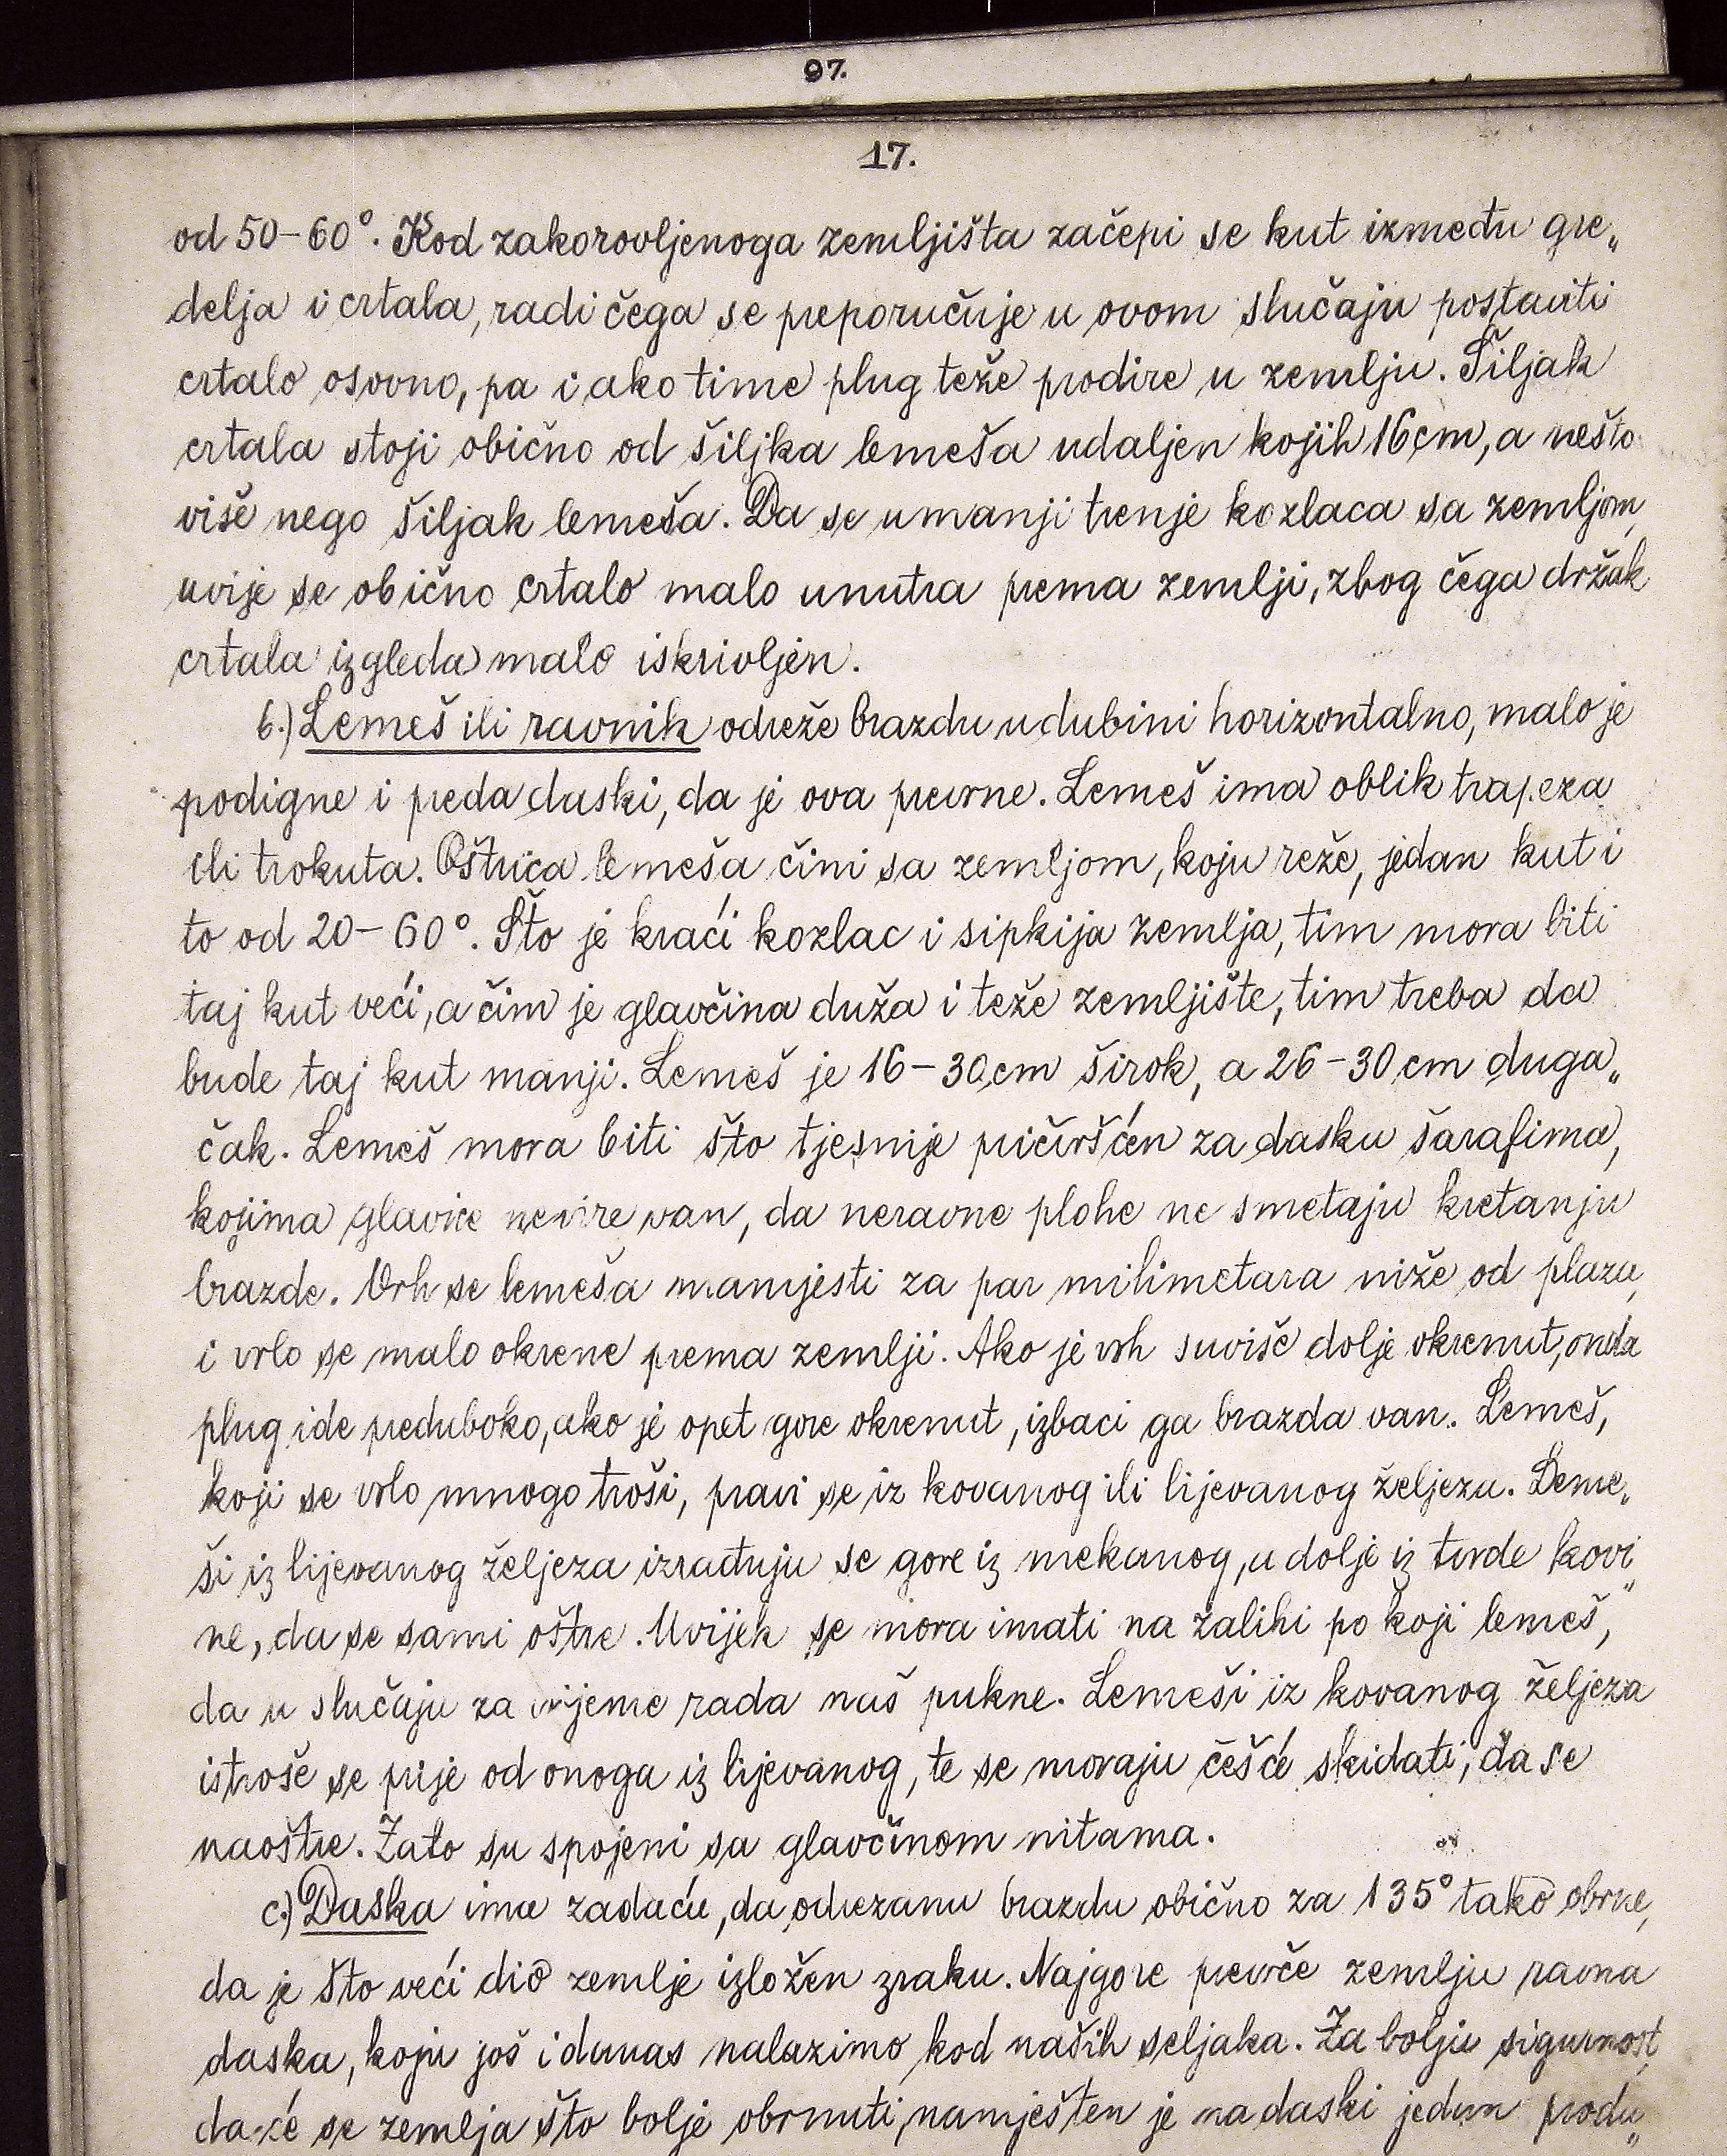 97.
17.
od 50-60°. Kod zakorovljenoga zemljišta začepi se kut između gre„
delja i crtala, radi čega se preporučuje u ovom slučaju postaviti
crtalo osovno, pa i ako time plug teže prodire u zemlju. Šiljak
crtala stoji obično od šiljka lemeša udaljen kojih 16 cm, a nešto
više nego šiljak lemeša. Da se umanji trenje kozlaca sa zemljom,
uvije se obično crtalo malo unutra prema zemlji, zbog čega držak
crtala izgleda malo iskrivljen.
b.) Lemeš ili ravnik odreže brazdu u dubini horizontalno, malo je
podigne i preda daski, da je ova prevrne. Lemeš ima oblik trapeza
ili trokuta. Oštrica lemeša čini sa zemljom, koju reže, jedan kut i
to od 20-60°. Što je kraći kozlac i sipkija zemlja, tim mora biti
taj kut veći, a čim je glavčina duža i teže zemljište, tim treba da
bude taj kut manji. Lemeš je 16-30 cm širok, a 26-30 cm duga„
čak. Lemeš mora biti što tjesnije pričvršćen za dasku šarafima,
kojima glavice ne vire van, da neravne plohe ne smetaju kretanju
brazde. Vrh se lemeša namjesti za par milimetara niže od plaza,
i vrlo se malo okrene prema zemlji. Ako je vrh suviše dolje okrenut, onda
plug ide preduboko, ako je opet gore okrenut, izbaci ga brazda van. Lemeš,
koji se vrlo mnogo troši, pravi se iz kovanog ili lijevanog željeza. Leme„
ši iz lijevanog željeza izrađuju se gore iz mekanog, a dolje iz tvrde kovi„
ne, da se sami oštre. Uvijek se mora imati na zalihi po koji lemeš,
da u slučaju za vrijeme rada naš pukne. Lemeši iz kovanog željeza
istroše se prije od onoga iz lijevanog, te se moraju češće skidati, da se
naoštre. Zato su spojeni sa glavčinom nitama.
c.) Daska ima zadaću, da odrezanu brazdu obično za 135° tako obrne,
da je što veći dio zemlje izložen zraku. Najgore prevrće zemlju ravna
daska, koju još i danas nalazimo kod naših seljaka. Za bolju sigurnost,
da će se zemlja što bolje obrnuti, namješten je na daski jedan produ„